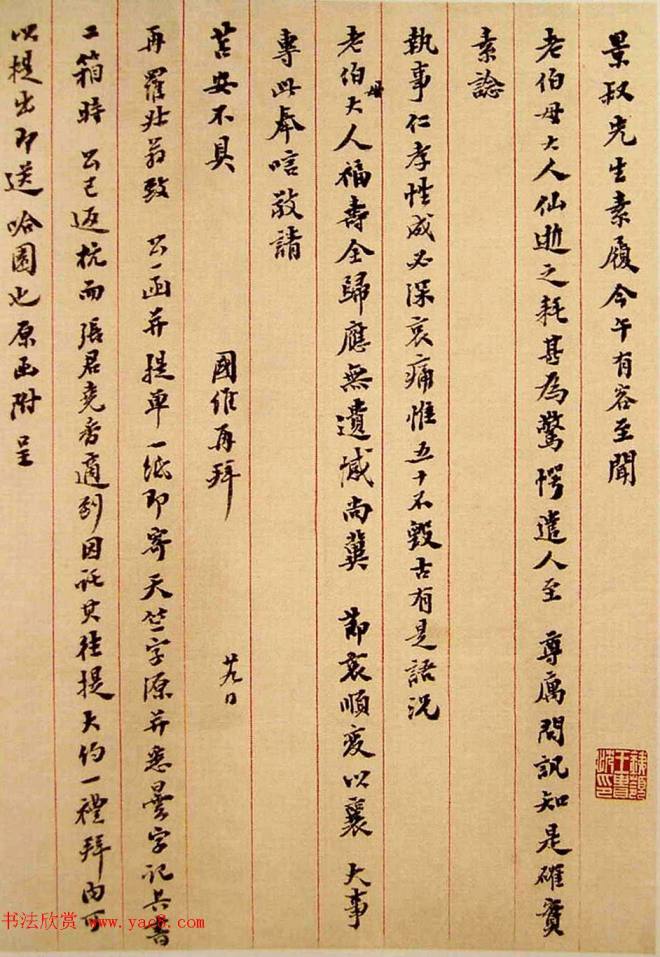 景叔先生素履今午有客至聞
老伯母大人仙逝之耗甚為驚愕遣人至 尊属問訊知是確實
素諗
執事仁孝性成必深哀痛惟五十不毀古有是語況
老伯母大人福壽全歸應無遺憾尚冀 節哀順变以襄 大事
專此奉唁敬請
苫安不具 國維再拜 廿九日
再羅叔翁致 公一函并提單一纸即寄天竺字源并悉曇字記共書
二箱時 公已返杭而張君尧香適到因託其往提大约一禮拜内可
以提出即送哈園也原函附呈
书法欣赏 www.yac8.com